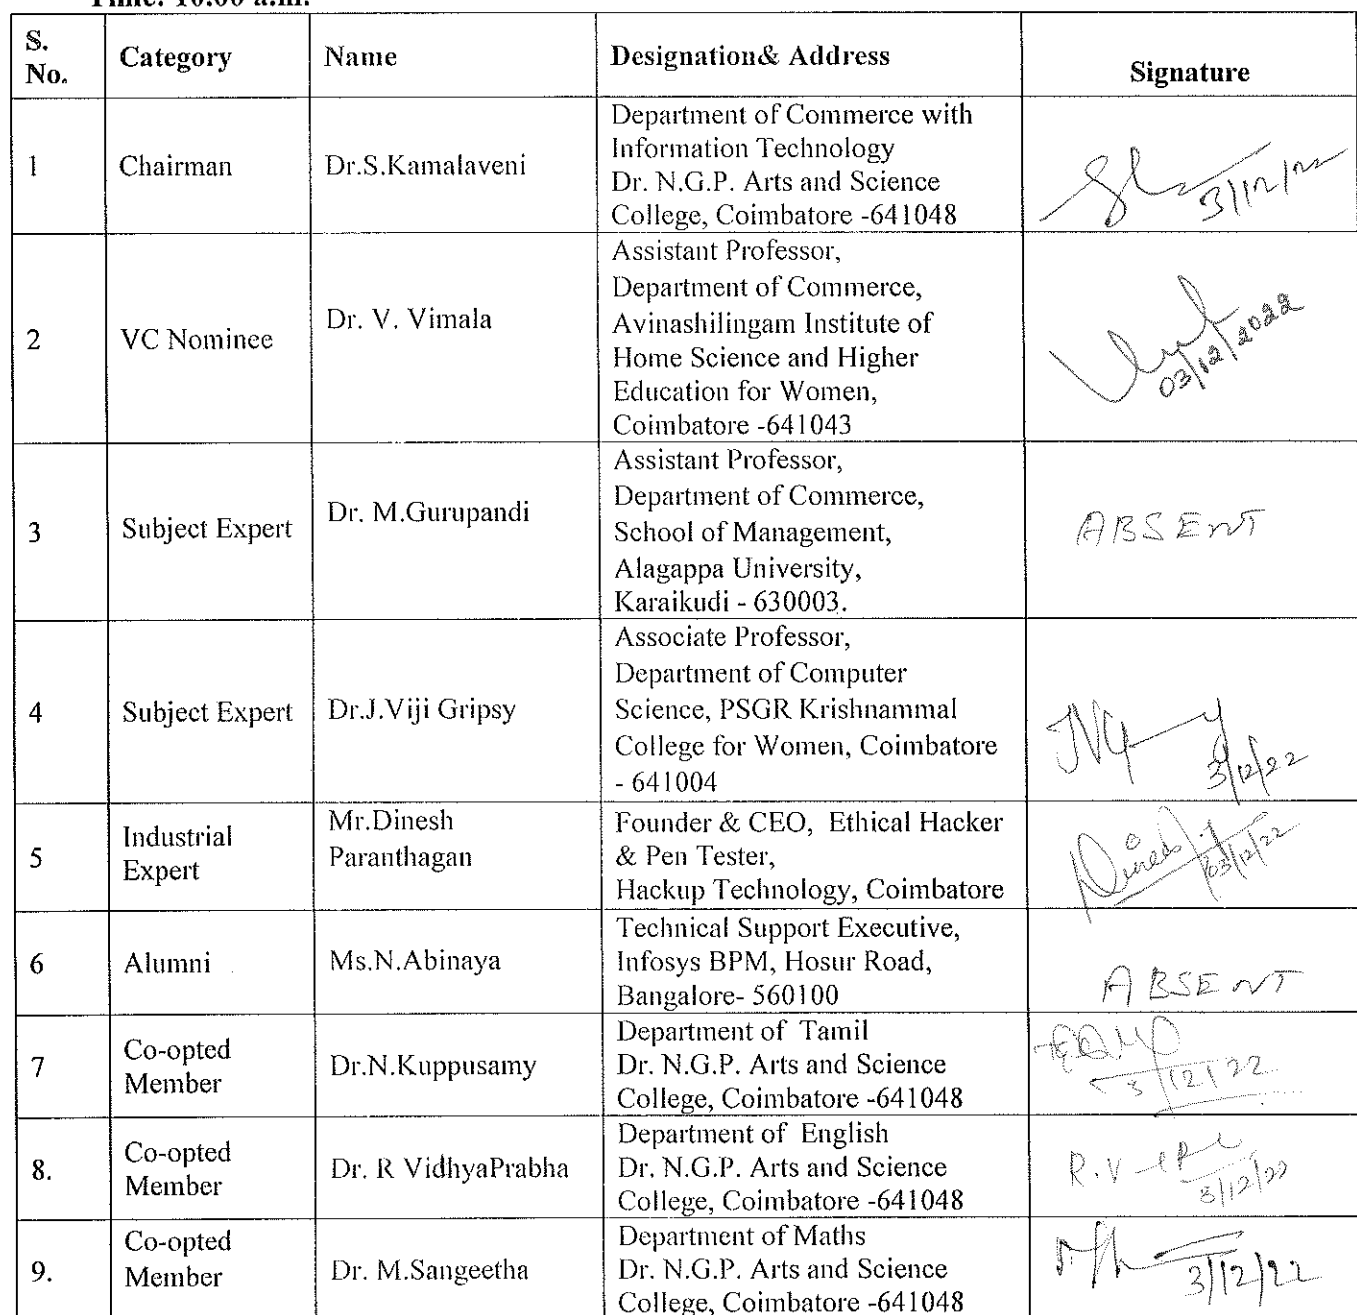 Time: 10.00 a.m.
S. No. Category Name Designation& Address Signature
1 Chairman Dr.S.Kamalaveni Department of Commerce with
Information Technology
Dr. N.G.P. Arts and Science
College, Coimbatore -641048
3/12/22
2 VC Nominee Dr. V. Vimala Assistant Professor,
Department of Commerce,
Avinashilingam Institute of
Home Science and Higher
Education for Women,
Coimbatore -641043
03/12/2022
3 Subject Expert Dr. M.Gurupandi Assistant Professor,
Department of Commerce,
School of Management,
Alagappa University,
Karaikudi - 630003.
ABSENT
4 Subject Expert Dr.J.Viji Gripsy Associate Professor,
Department of Computer
Science, PSGR Krishnammal
College for Women, Coimbatore
- 641004
3/12/22
5 Industrial Expert Mr.Dinesh Paranthagan Founder & CEO, Ethical Hacker
& Pen Tester,
Hackup Technology, Coimbatore
03/12/22
6 Alumni Ms.N.Abinaya Technical Support Executive,
Infosys BPM, Hosur Road,
Bangalore- 560100
ABSENT
7 Co-opted Member Dr.N.Kuppusamy Department of Tamil
Dr. N.G.P. Arts and Science
College, Coimbatore -641048
3/12/22
8. Co-opted Member Dr. R VidhyaPrabha Department of English
Dr. N.G.P. Arts and Science
College, Coimbatore -641048
R.V
3/12/22
9. Co-opted Member Dr. M.Sangeetha Department of Maths
Dr. N.G.P. Arts and Science
College, Coimbatore -641048
3/12/22